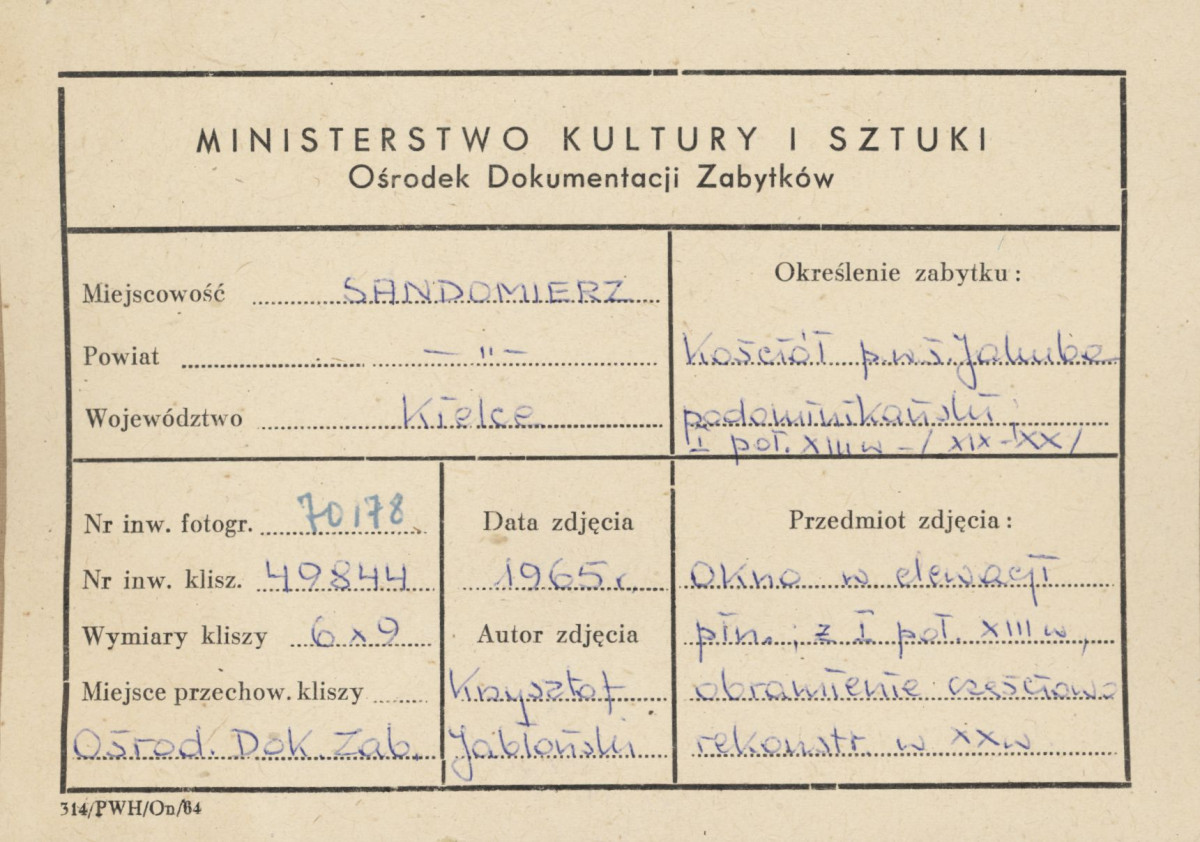 MINISTERSTWO KULTURY I SZTUKI
Ośrodek Dokumentacji Zabytków
Miejscowość SANDOMIERZ
Powiat — " —
Województwo Kielce
Określenie zabytku:
Kościół p.w ś. Jakuba
podominikański
I poł. XIII w - / XIX - XX /
Nr inw. fotogr. 70178
Nr inw. klisz. 49844
Wymiary kliszy 6 x 9
Miejsce przechow. kliszy
Ośrod. Dok. Zab.
Data zdjęcia
1965 r.
Autor zdjęcia
Krzysztof
Jabłoński
Przedmiot zdjęcia:
Okno w elewacji
płn., z I poł. XIII w,
obramienie częściowo
rekonstr. w XX w
314/PWH/On/64